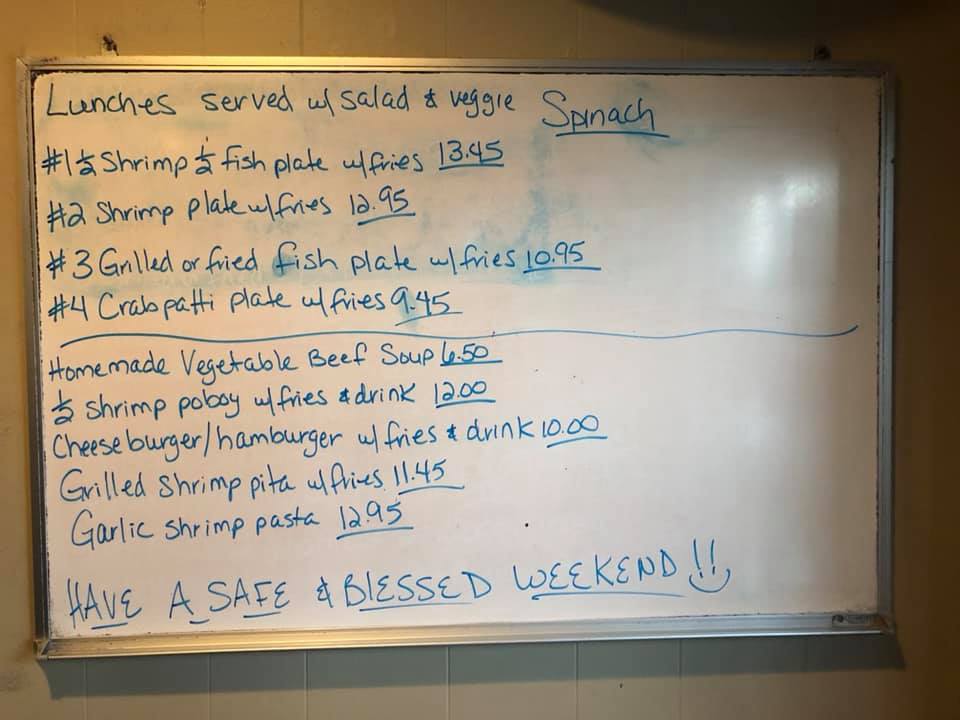 Lunches served w/ salad & veggie Spinach
#1 ½ Shrimp ½ fish plate w/fries 13.45
#2 Shrimp plate w/fries 12.95
#3 Grilled or fried fish plate w/fries 10.95
#4 Crab patti plate w/fries 9.45
Homemade Vegetable Beef Soup 6.50
½ shrimp poboy w/fries & drink 12.00
Cheeseburger/hamburger w/ fries & drink 10.00
Grilled Shrimp pita w/fries 11.45
Garlic shrimp pasta 12.95
HAVE A SAFE & BLESSED WEEKEND!!